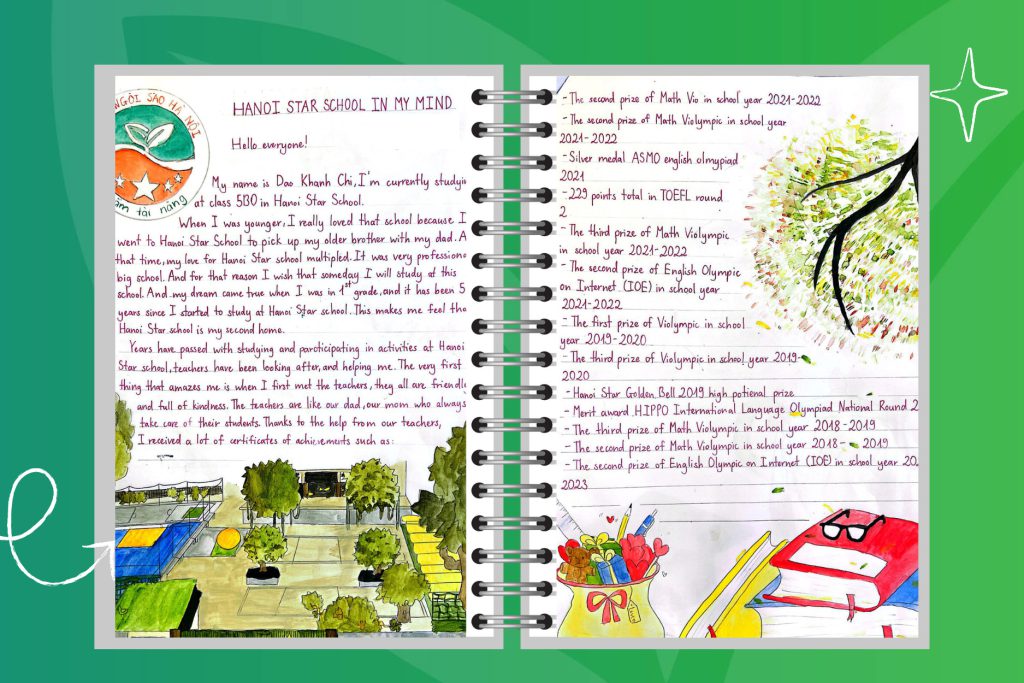 NGÔI SAO HÀ NỘI
tài năng
HANOI STAR SCHOOL IN MY MIND
Hello everyone!
My name is Dao Khanh Chi, I'm currently studyin
at class 5B0 in Hanoi Star School.
When I was younger, I really loved that school because I
went to Hanoi Star School to pick up my older brother with my dad. A
that time, my love for Hanoi Star school multipled. It was very professiona
big school. And for that reason I wish that someday I will study at this
school. And my dream came true when I was in 1st grade, and it has been 5
years since I started to study at Hanoi Star school. This makes me feel tha
Hanoi Star school is my second home.
Years have passed with studying and paroticipating in activities at Hanoi
Star school, teachers have been looking after, and helping me. The very first
thing that amazes me is when I first met the teachers, they all are friendle
and full of kindness. The teachers are like our dad, our mom who always
take care of their students. Thanks to the help from our teachers,
I received a lot of certificates of achievements such as:
- The second prize of Math Vio in school year 2021-2022
- The second prize of Math Violympic in school year
2021-2022
- Silver medal ASMO english olmypiad
2021
- 229 points total in TOEFL round
2
- The third prize of Math Violympic
in school year 2021-2022
- The second prize of English Olympic
on Internet (IOE) in school year
2021-2022
- The first prize of Violympic in school
year 2019-2020
- The third prize of Violympic in school year 2019-
2020
- Hanoi Star Golden Bell 2019 high potienal prize
- Merit award HIPPO International Language Olympiad National Round 2
- The third prize of Math Violympic in school year 2018-2019
- The second prize of Math Violympic in school year 2018-2019
- The second prize of English Olympic on Internet (IOE) in school year 20
2023